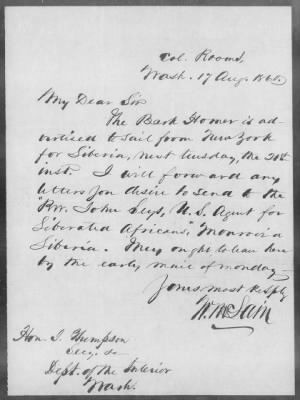 Col. Rooms,
Wash. 17 Aug. 1860
My Dear Sir
The Bark Homer is ad-
vertised to sail from New York
for Liberia, next tuesday, the 21st
inst. I will forward any
letters you desire to send to the
"Rev. John Seys, U.S. Agent for
Liberated Africans," Monrovia
Liberia. They ought to leave here
by the early mail of monday.
Yours most Respty
W. McLain
Hon. J. Thompson
Secy. &c
Dept. of the Interior
Wash.